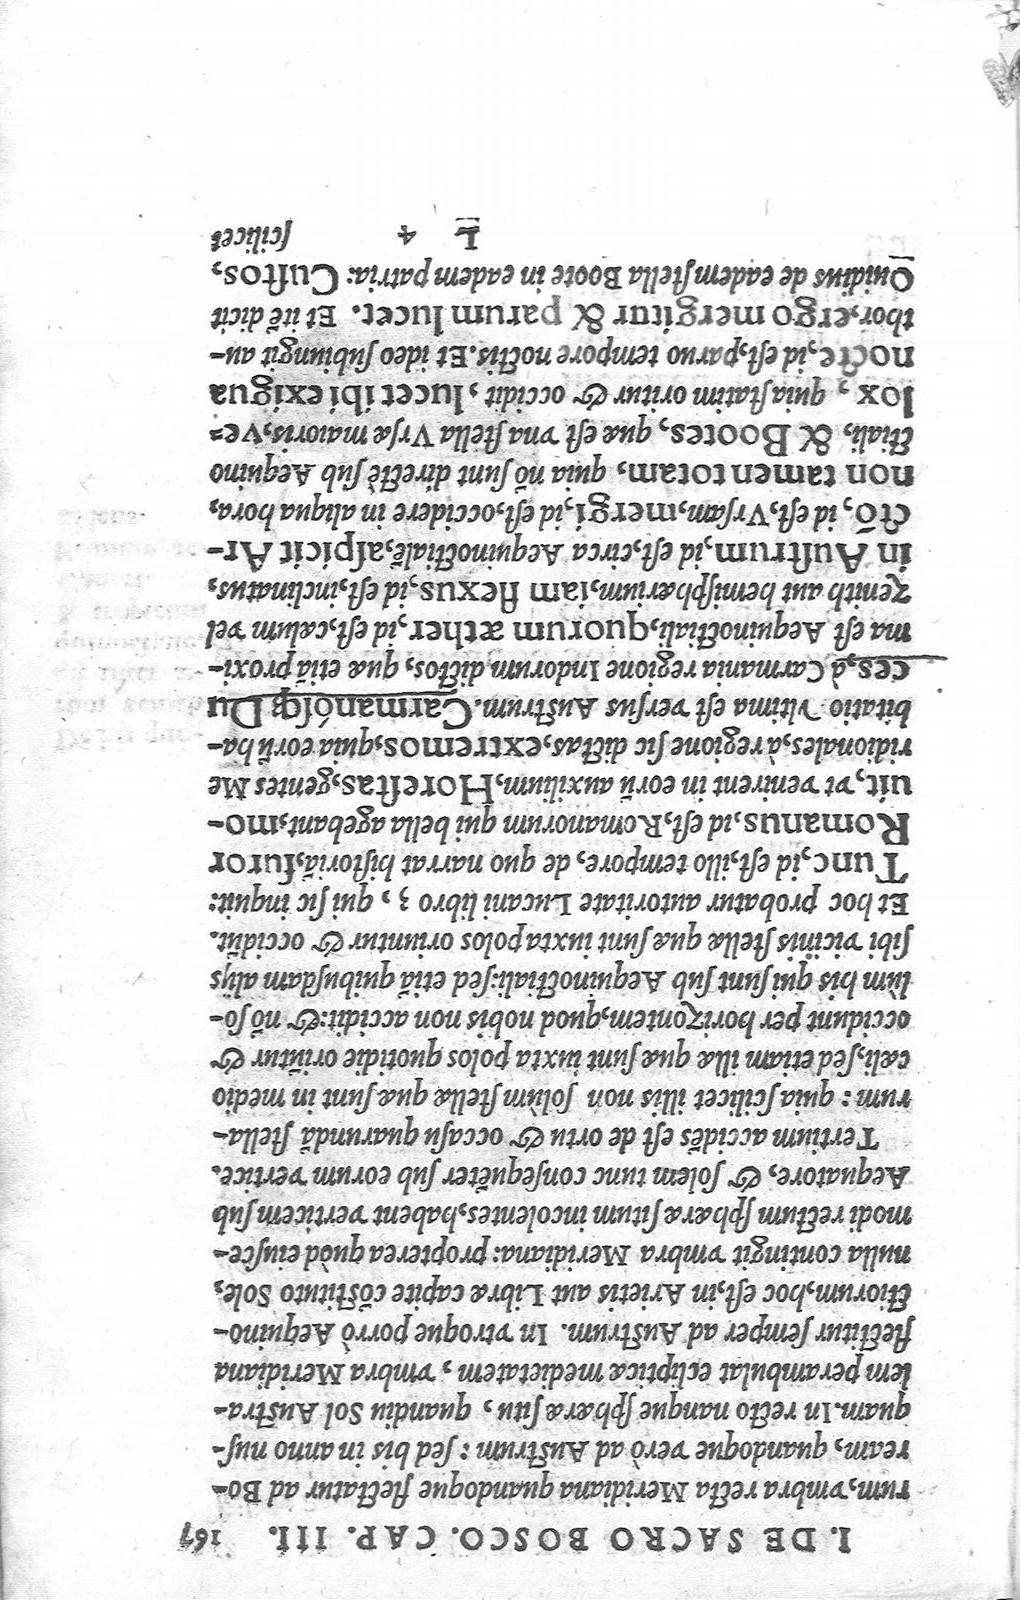 I. DE SACRO BOSCO. CAP. III. 167
rum, vmbra recta Meridiana quandoque flectatur ad Bo-
ream, quandoque verò ad Austrum: sed bis in anno nus-
quam. In recto nanque sphæræ situ, quandiu Sol Austra-
lem perambulat eclipticæ medietatem, vmbra Meridiana
flectitur semper ad Austrum. In vtroque porrò Aequino-
ctiorum, hoc est, in Arietis aut Libræ capite cõstituto Sole,
nulla contingit vmbra Meridiana: propterea quòd eiusce-
modi rectum sphæræ situm incolentes, habent verticem sub
Aequatore, & solem tunc consequẽter sub eorum vertice.
Tertium accidẽs est de ortu & occasu quarundã stella-
rum: quia scilicet illis non solùm stellæ quæ sunt in medio
cæli, sed etiam illæ quæ sunt iuxta polos quotidie oriũtur &
occidunt per horizontem, quod nobis non accidit: & nõ so-
lùm his qui sunt sub Aequinoctiali: sed etiã quibusdam alijs
sibi vicinis stellæ quæ sunt iuxta polos oriuntur & occidũt.
Et hoc probatur autoritate Lucani libro 3, qui sic inquit:
Tunc, id est, illo tempore, de quo narrat historiã, furor
Romanus, id est, Romanorum qui bella agebant, mo-
uit, vt venirent in eorũ auxilium, Horestas, gentes Me
ridionales, à regione sic dictas, extremos, quia eorũ ha-
bitatio vltima est versus Austrum. Carmanósq; Du
ces, à Carmania regione Indorum dictos, quæ etiã proxi-
ma est Aequinoctiali, quorum æther, id est, cælum vel
zenith aut hemisphærium, iam flexus, id est, inclinatus,
in Austrum, id est, circa Aequinoctialẽ, aspicit Ar-
ctõ, id est, Vrsam, mergi, id est, occidere in aliqua hora,
non tamen totam, quia nõ sunt directè sub Aequino
ctiali, & Bootes, quæ est vna stella Vrsæ maioris, ve-
lox, quia statim oritur & occidit, lucet ibi exigua
nocte, id est, paruo tempore noctis. Et ideo subiungit au-
thor, ergo mergitur & parum lucet. Et itẽ dicit
Ouidius de eadem stella Boote in eadem patria: Custos,
L 4 scilicet